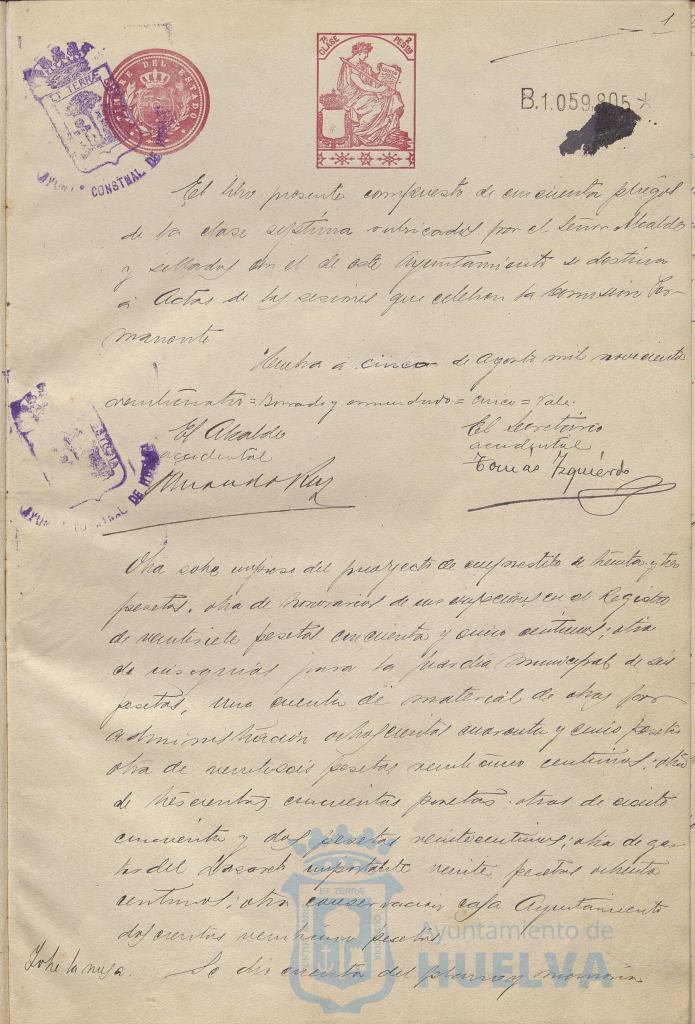 1
TIMBRE DEL ESTADO
7ª CLASE 2 PESETAS
B.1.059.805 *
ET TERRÆ
AYUNT CONSTNAL DE
El libro presente compuesto de cincuenta pliegos
de la clase septima rubricados por el Señor Alcalde
y sellados con el de este Ayuntamiento se destina
a Actas de las sesiones que celebra la Comisión Per-
manente
Huelva a cinco de Agosto mil novecientos
veinticuatro = Borrado y enmendado = cinco = Vale.
El Alcalde
accidental
El Secretario
accidental
Tomas Izquierdo
AYUN DE
Otra sobre impreso del proyecto de emprestito de treinta y tres
pesetas, otra de honorarios de inscripciones en el Registro
de veintisiete pesetas cincuenta y cinco centimos; otra
de insignias para la Guardia Municipal de seis
pesetas, una cuenta de material de obras por
administración ochocientas cuarenta y cinco pesetas
otra de veinteseis pesetas veinticinco centimos, otra
de trescientas cincuenta pesetas. otras de ciento
cincuenta y dos pesetas veinte centimos; otra de gas-
tos del Lazareto importante veinte pesetas ochenta
centimos; otra conservacion casa Ayuntamiento
doscientas veinticinco pesetas
Sobre la mesa. Se dio cuenta del plano y memoria
ET TERRÆ
Ayuntamiento de
HUELVA